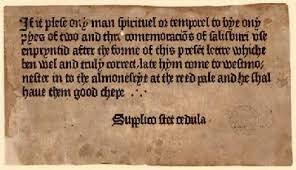 If it plese ony man spirituel or temporel to bye ony
pyes of two and thre comemoracios of salisburi vse
enpryntid after the forme of this preset lettre whiche
ben wel and truly correct, late hym come to westmo-
nester in to the almonesrye at the reed pale and he shal
haue them good chepe ∴
Supplico stet cedula